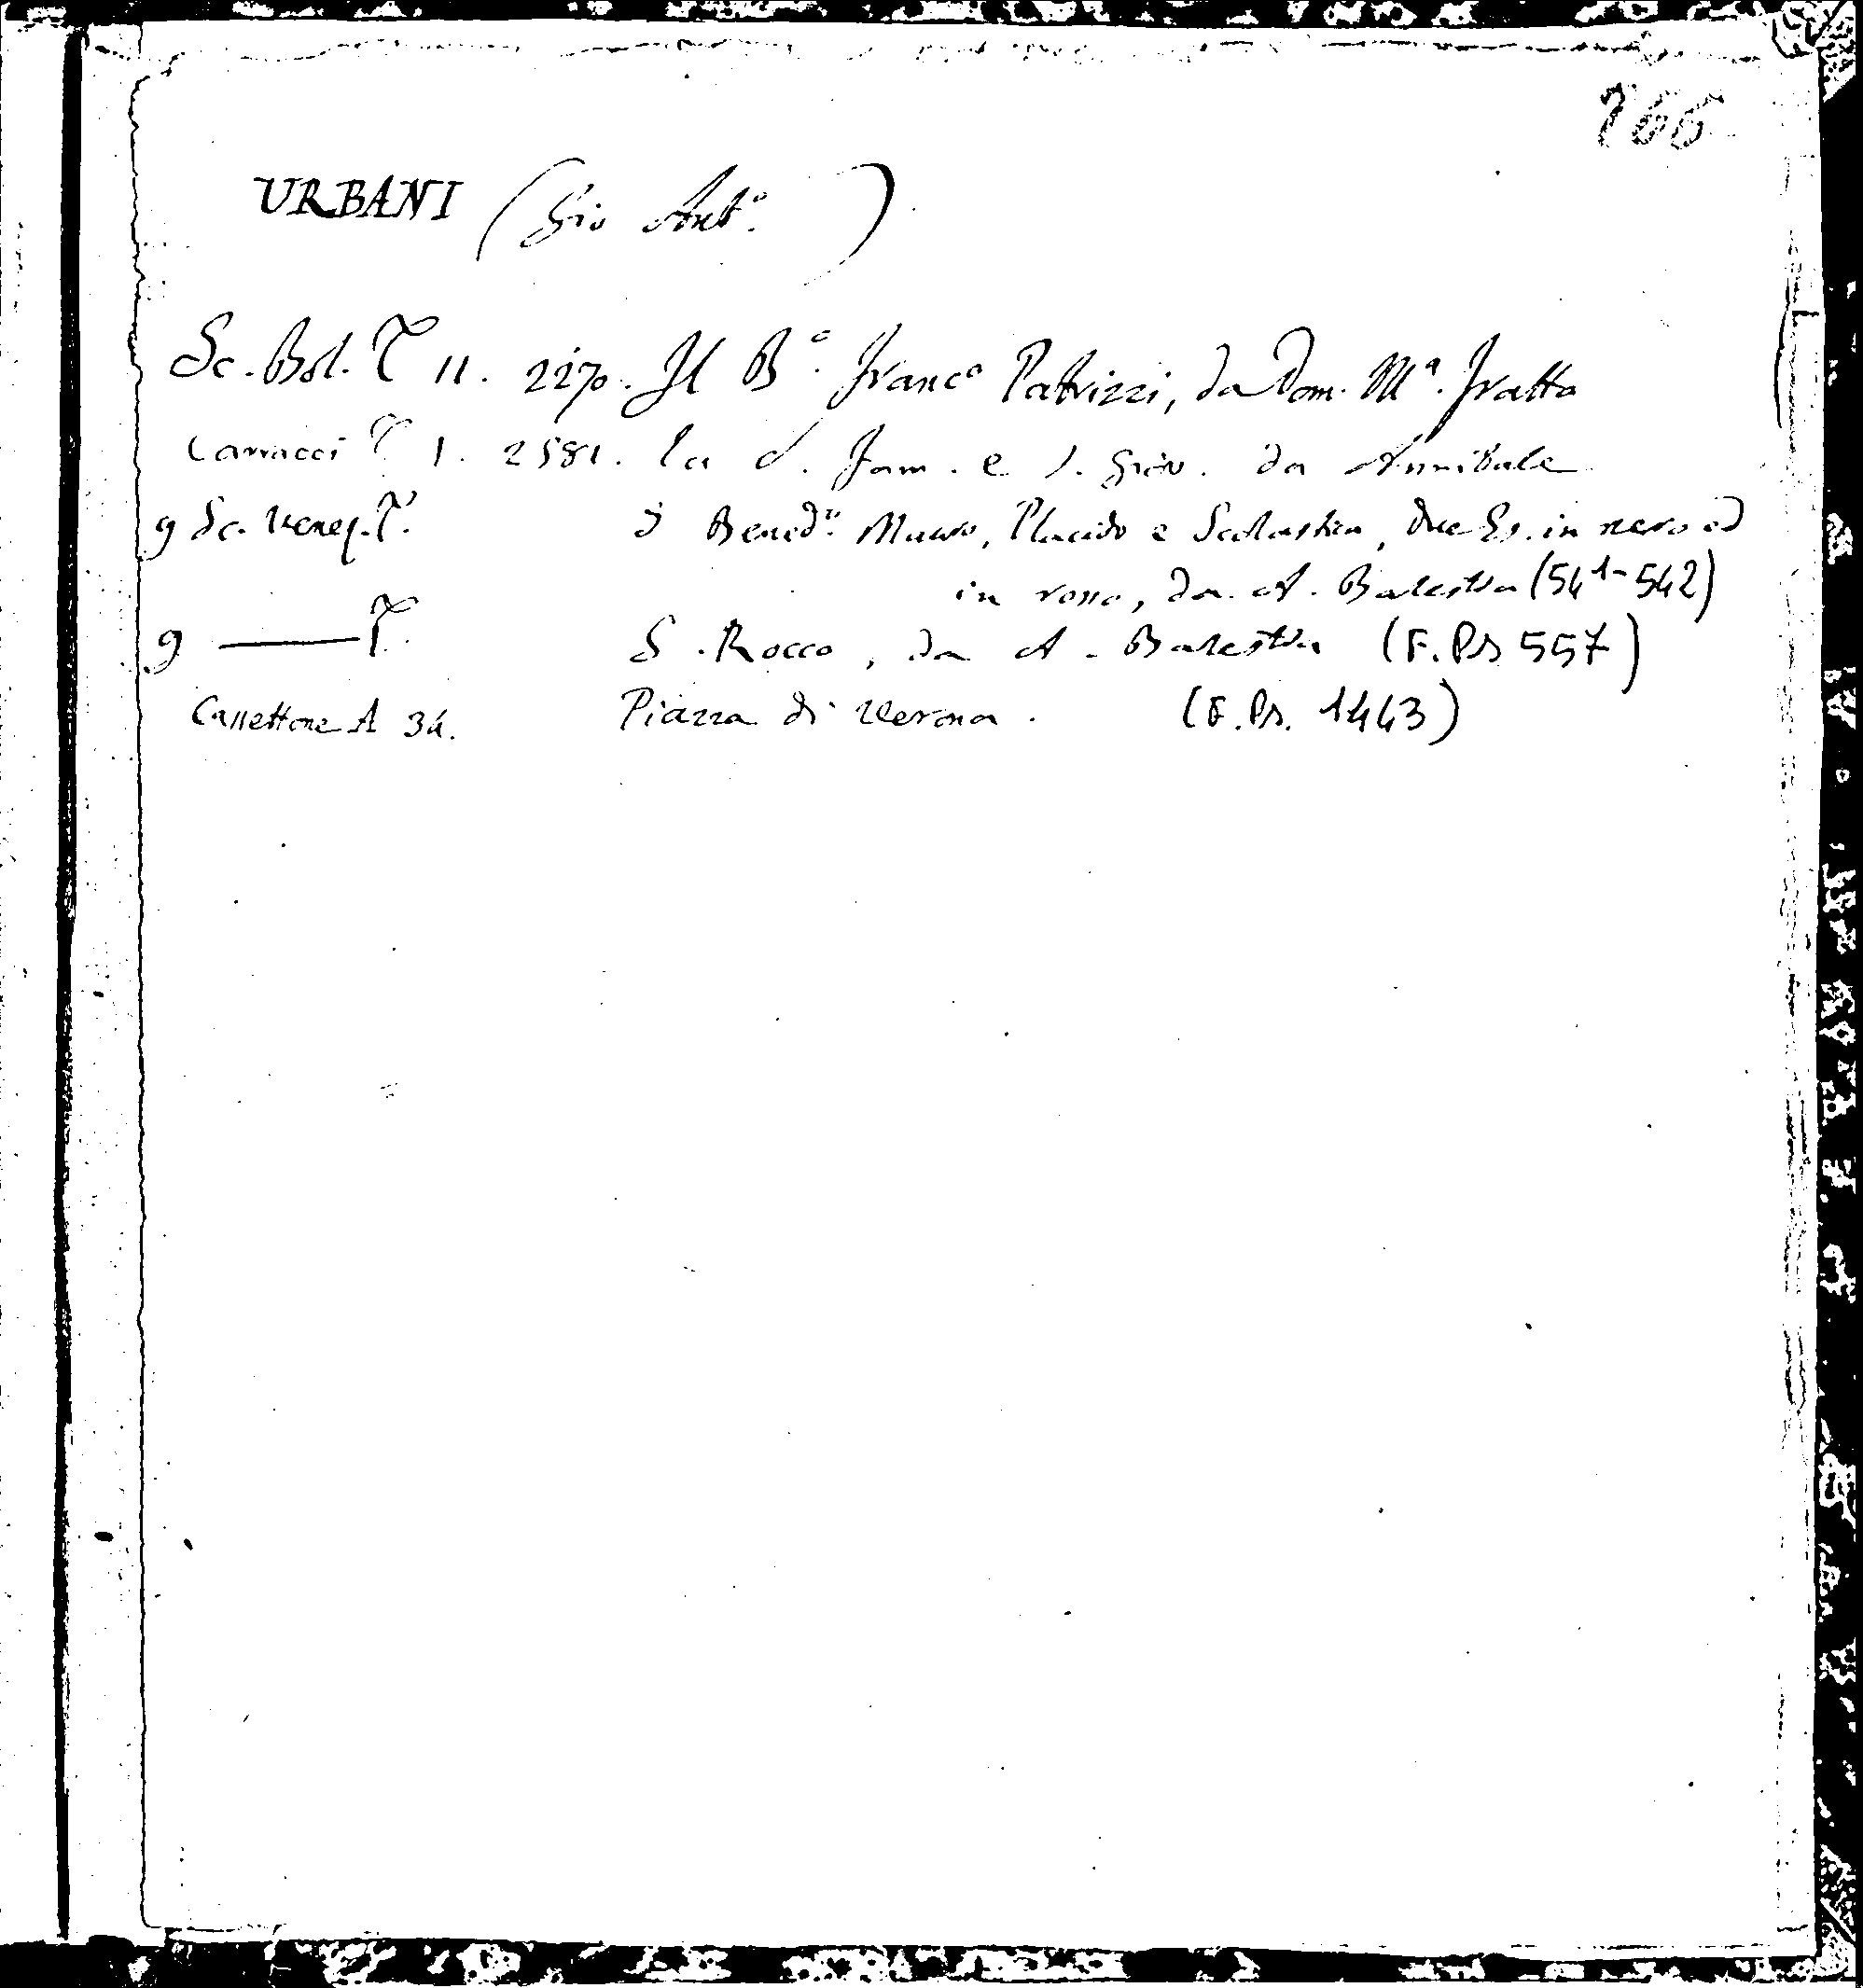 266
URBANI (Gio Antº. )
Sc. Bol. T 11. 2270. Il Bº. Francº Patrizzi, da Dom. Mª. Fratta
Carracci T 1. 2581. la S. Fam. e S. Giov. da Annibale
g Sc. Venez. T. S Bened.º Mauro, Placido e Scolastica, due Es. in nero ed
in rosso, da A. Balestra (541-542)
g ——— T. S. Rocco, da A. Balestra (F.Ps 557)
Cassettone A 34. Piazza di Verona. (F.Ps. 1443)